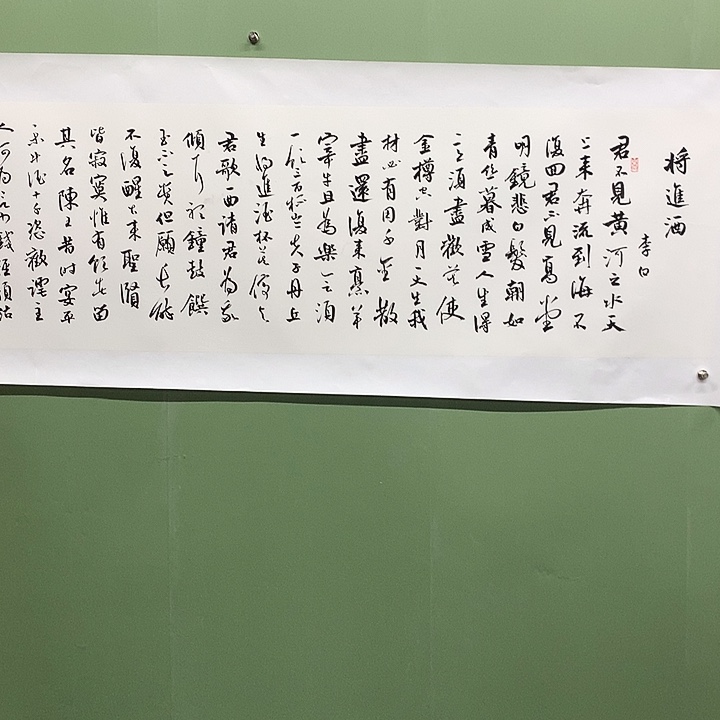 将進酒
李白
君不見黄河之水天
上来奔流到海不
復回君不見高堂
明鏡悲白髮朝如
青丝暮成雪人生得
意须盡歡莫使
金樽空對月天生我
材必有用千金散
盡還復来烹羊
宰牛且為樂会须
一飲三百杯岑夫子丹丘
生将進酒杯莫停与
君歌一曲请君为我
傾耳听鐘鼓饌
玉不足贵但願长醉
不復醒古来聖賢
皆寂寞惟有飲者留
其名陳王昔时宴平
乐斗酒十千恣歡謔主
人何为言少钱径须沽